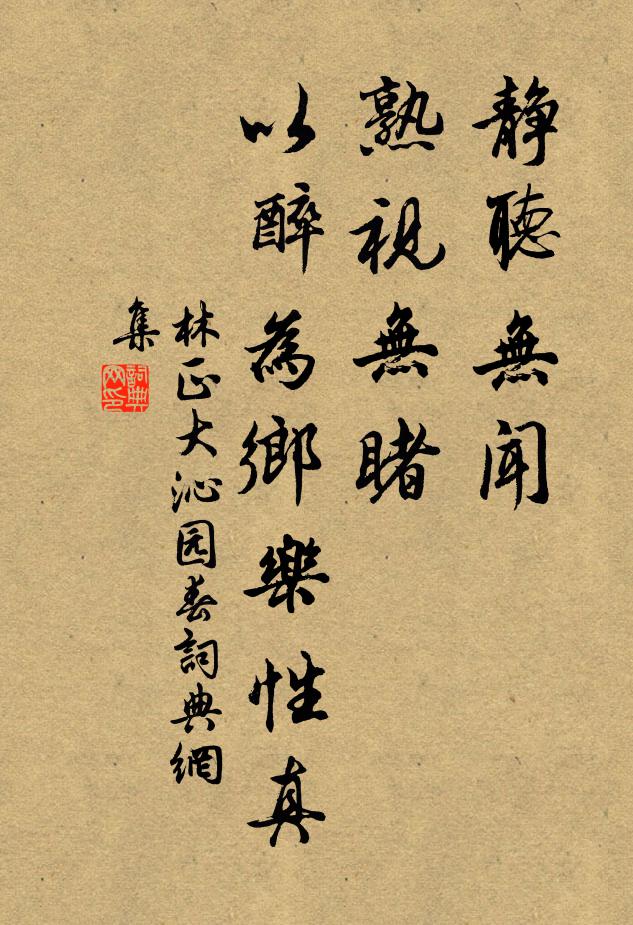 靜聽無聞
熟視無睹
以醉為鄉樂性真
林正大沁园春詞典網
集
詞典
网印